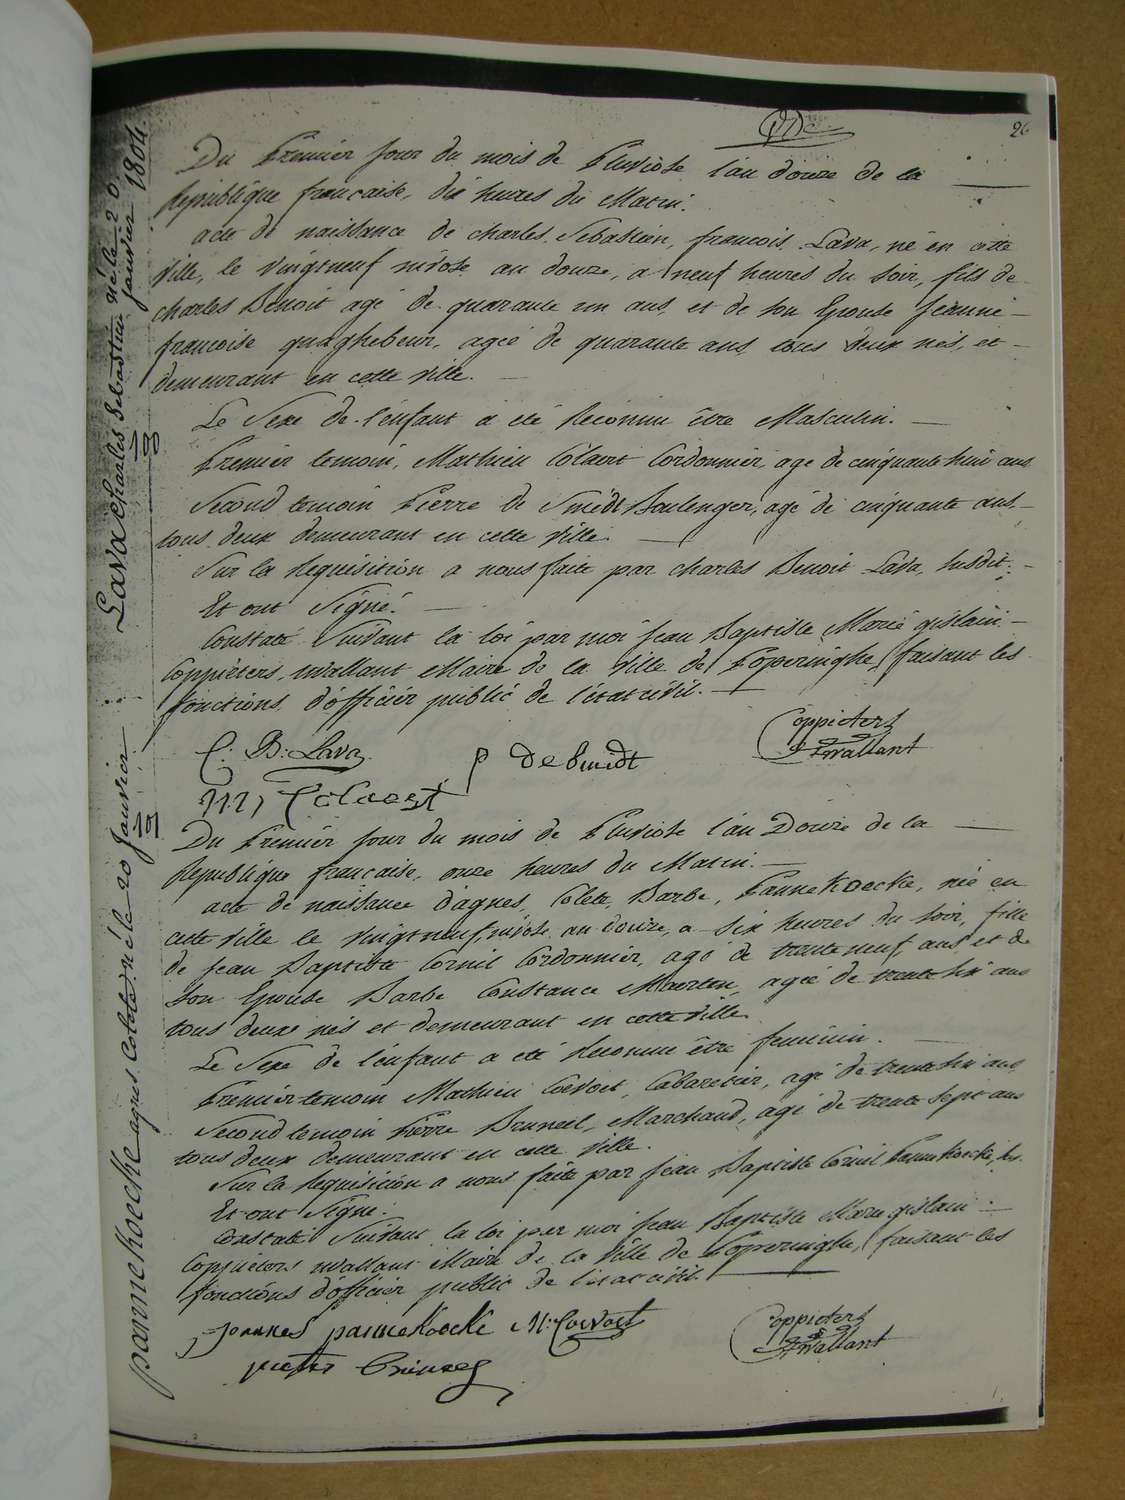 26
Du Premier jour du mois de Pluviose l'an douze de la
Republique française, dix heures du Matin.
acte de naissance de charles, Sebastien, francois Lava, né en cette
ville, le vingtneuf nivose an douze, a neuf heures du soir, fils de
charles Benoit agé de quarante un ans, et de son Epouse Jeanne
francoise quaghebeur, agée de quarante ans, tous deux nés, et
demeurant en cette ville.
Le Sexe de l'énfant a été Reconnu être Masculin.
Premier temoin, Mathieu Colaert Cordonnier, agé de cinquante huit ans
Second temoin Pierre de Smidt Boulenger, agé de cinquante ans,
tous deux demeurant en cette ville.
Sur la Requisition a nous faite par charles Benoit Lava, susdit.
Et ont Signé.
Constaté Suivant la loi par moi Jean Baptiste Marie gislain
Coppieters, wallant Maire de la ville de Poperinghe, faisant les
fonctions d'officier public de l'etat civil.
C. B. Lava
P de Smidt
Coppieters
Twallant
M Colaert
Du Premier jour du mois de Pluviose l'an Douze de la
Republique française, onze heures du Matin.
acte de naissance d'agnes, Colete, Barbe, Pannekoecke, née en
cette ville le vingtneuf nivose an douze, a six heures du soir, fille
de Jean Baptiste Cornil Cordonnier, agé de trente neuf ans et de
son Epouse Barbe Constance Maerten, agée de trente six ans
tous deux nés et demeurant en cette ville.
Le Sexe de l'énfant a été Reconnu être feminin.
Premier temoin Mathieu Coevoet, Cabaretier, agé de trente six ans
Second temoin Pierre Bruneel, Marchand, agé de trente sept ans
tous deux demeurant en cette ville.
Sur la Requisition a nous faite par Jean Baptiste Cornil Pannekoecke,
Et ont Signé.
Constaté Suivant la loi par moi Jean Baptiste Marie gislain
Coppieters wallant Maire de la ville de Poperinghe, faisant les
fonctions d'officier public de l'etat civil.
Joannes pannekoecke M. Coevoet
Coppieters
Twallant
pieter Bruneel
Lava Charles Sebastien né le 20
Janvier 1804.
19
pannekoecke agnes Colete né le 20 Janvier
19